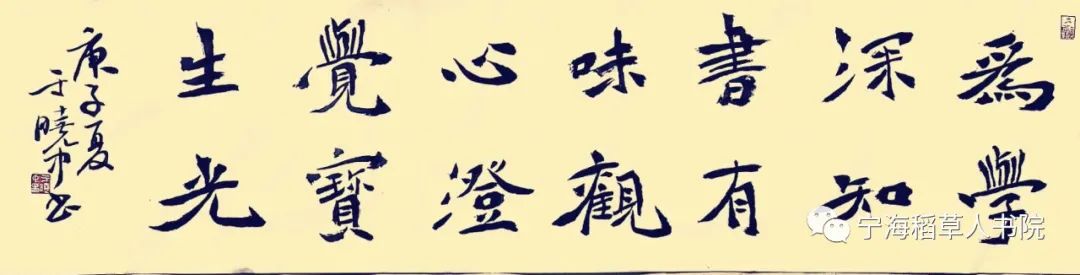 爲學
深知
書有
味觀
心澄
覺寶
生光
庚子夏
于曉书
宁海稻草人书院